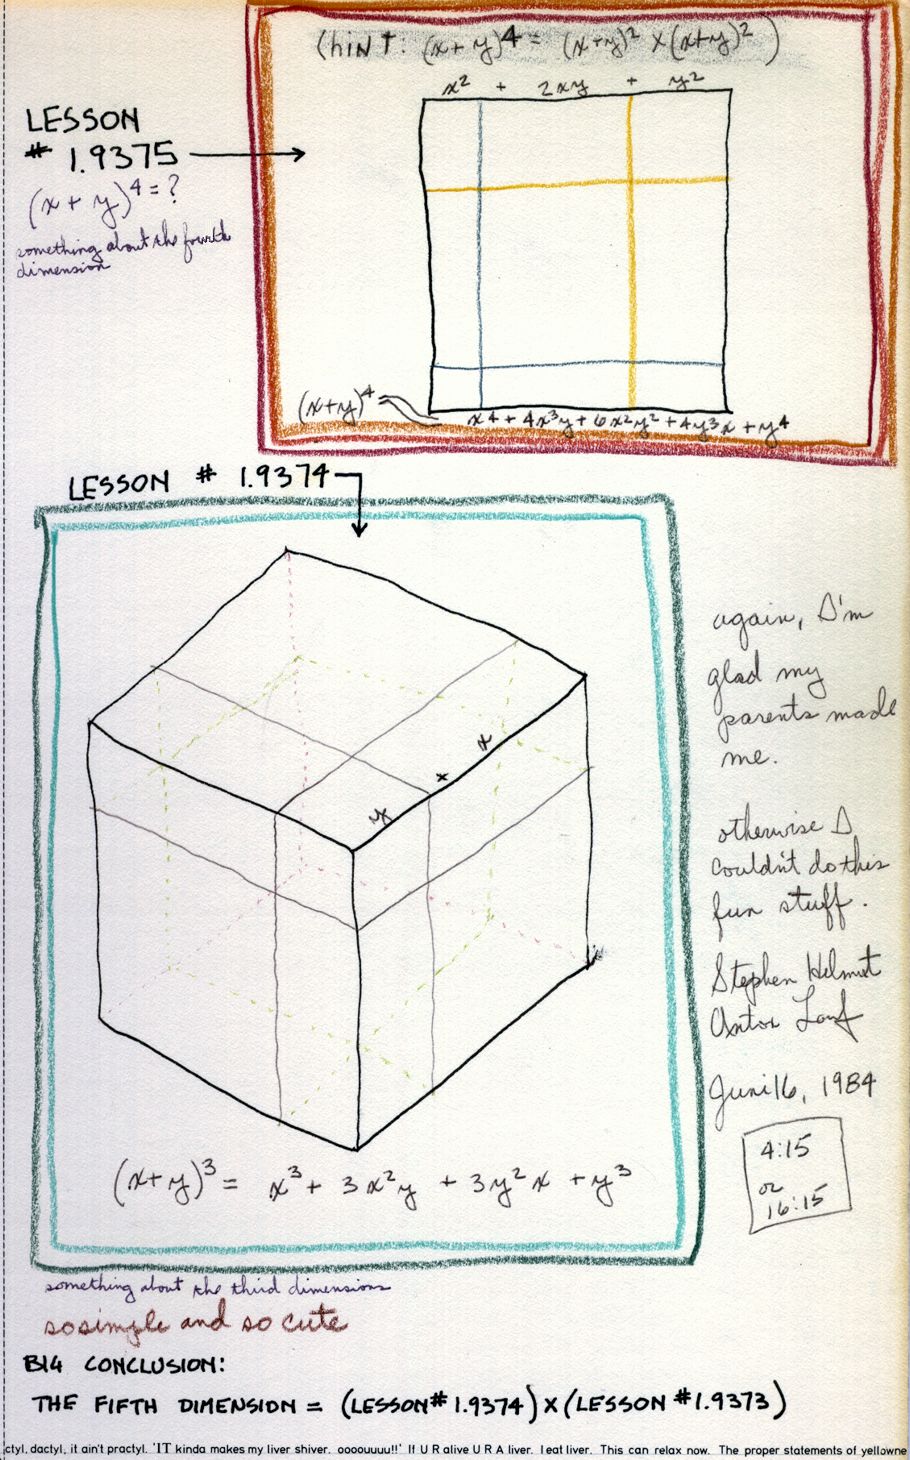 (hint: (x+y)⁴ = (x+y)² x (x+y)² )
x² + 2xy + y²
LESSON
# 1.9375
(x + y)⁴ = ?
something about the fourth
dimension
(x+y)⁴ =
x⁴ + 4x³y + 6x²y² + 4y³x + y⁴
LESSON # 1.9374
x
x
y
again, I'm
glad my
parents made
me.
otherwise I
couldn't do this
fun stuff.
Stephen Helmut
Anton
Juni 16, 1984
4:15
or
16:15
(x+y)³ = x³ + 3x²y + 3y²x + y³
something about the third dimensions
so simple and so cute
BIG CONCLUSION:
THE FIFTH DIMENSION = (LESSON # 1.9374) X (LESSON # 1.9373)
ctyl, dactyl, it ain't practyl. 'IT kinda makes my liver shiver. oooouuuu!!' If U R alive U R A liver. I eat liver. This can relax now. The proper statements of yellowne